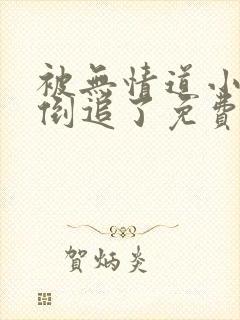 被無情道小
倒追了免費
賀炳炎